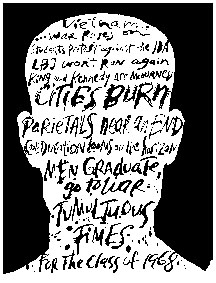 Vietnam
war rages on
students protest against the IDA
LBJ won't run again
King and Kennedy are MOURNED
CITIES BURN
PARIETALS near an END
Coeducation looms on the horizon
MEN GRADUATE,
go to WAR
TUMULTUOUS
TIMES
FOR THE Class of 1968.